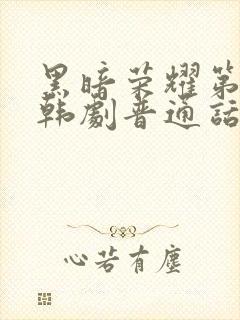 黑暗荣耀第
韩剧普通话
心若有塵